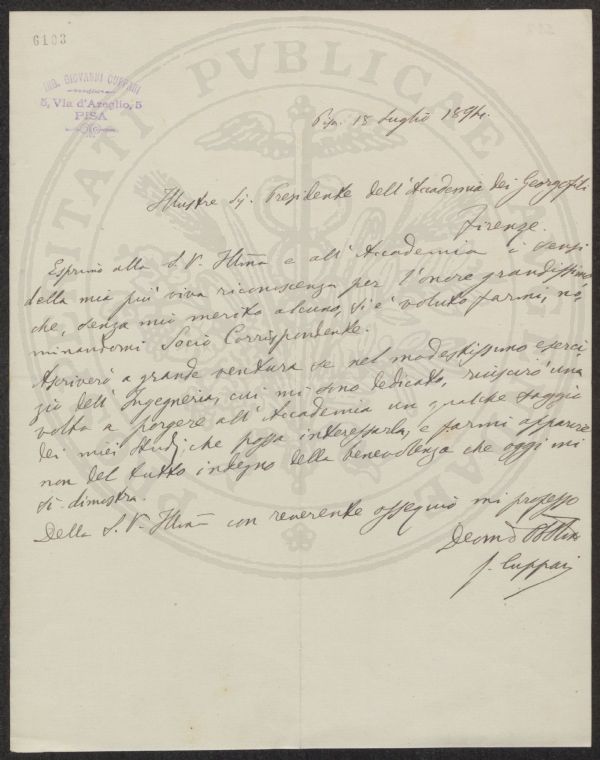 6103
ING. GIOVANNI CUPPARI
5, Via d'Azeglio, 5
PISA
PVBLICAE
Pisa 18 Luglio 1894.
Illustre Sig. Presidente dell'Accademia dei Georgofili
Firenze.
Esprimo alla S. V. Illma e all'Accademia i sensi
della mia più viva riconoscenza per l'onore grandissimo
che, senza mio merito alcuno, si è voluto farmi, no-
minandomi Socio Corrispondente.
Ascriverò a grande ventura se nel modestissimo eserci
zio dell'Ingegneria, cui mi sono dedicato, riuscirò una
volta a porgere all'Accademia un qualche saggio
dei miei studj, che possa interessarla, e farmi apparire
non del tutto indegno della benevolenza che oggi mi
si dimostra.
Della S. V. Illma con reverente ossequio mi professo
Devmo Obblmo
G. Cuppari